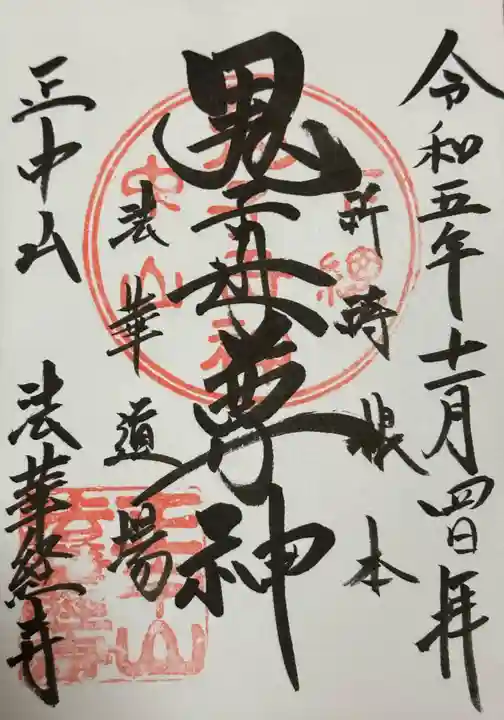 令和五年十一月四日拝
祈祷根本
鬼子母尊神
法華道場
正中山 法華経寺